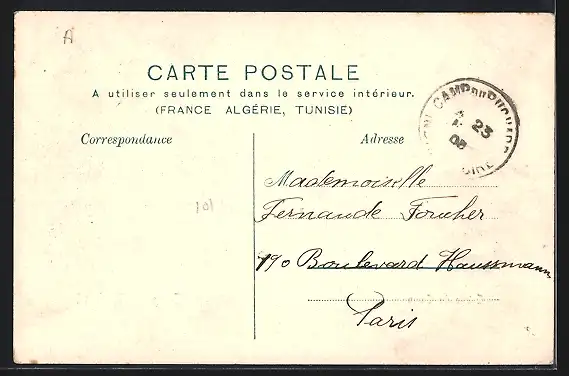 A
CARTE POSTALE
A utiliser seulement dans le service intérieur.
(FRANCE ALGÉRIE, TUNISIE)
Correspondance
Adresse
CAMP DU RUCHARD
23
05
Mademoiselle
Fernande Foucher
101
190 Boulevard Haussmann
Paris